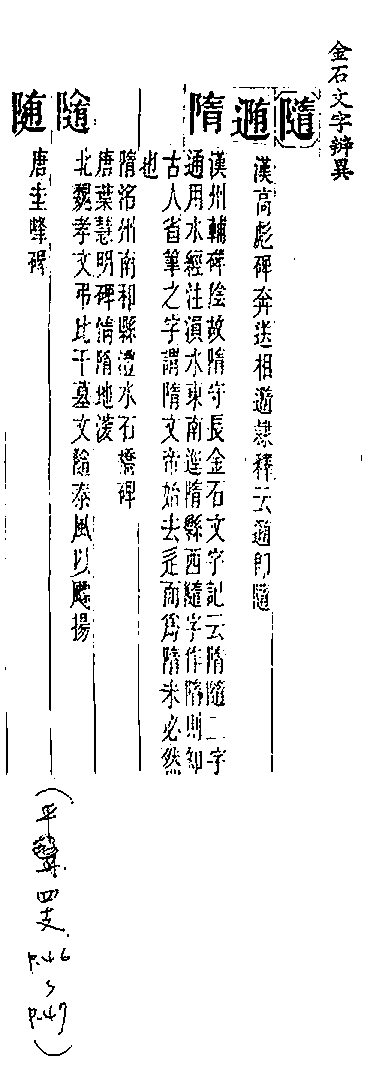 金石文字辨異
隨
遀 漢高彪碑奔送相遀隸釋云遀即隨
隋 漢州輔碑陰故隋守長金石文字記云隋隨二字
通用水經注溳水東南逕隋縣西隨字作隋則知
古人省筆之字謂隋文帝始去辵而爲隋未必然
也
隋洺州南和縣澧水石橋碑
唐葉慧明碑情隋地淩
隨 北魏孝文弔比干墓文隨泰風以飂揚
随 唐圭峰碑
(平聲四支
P.46
P.47)